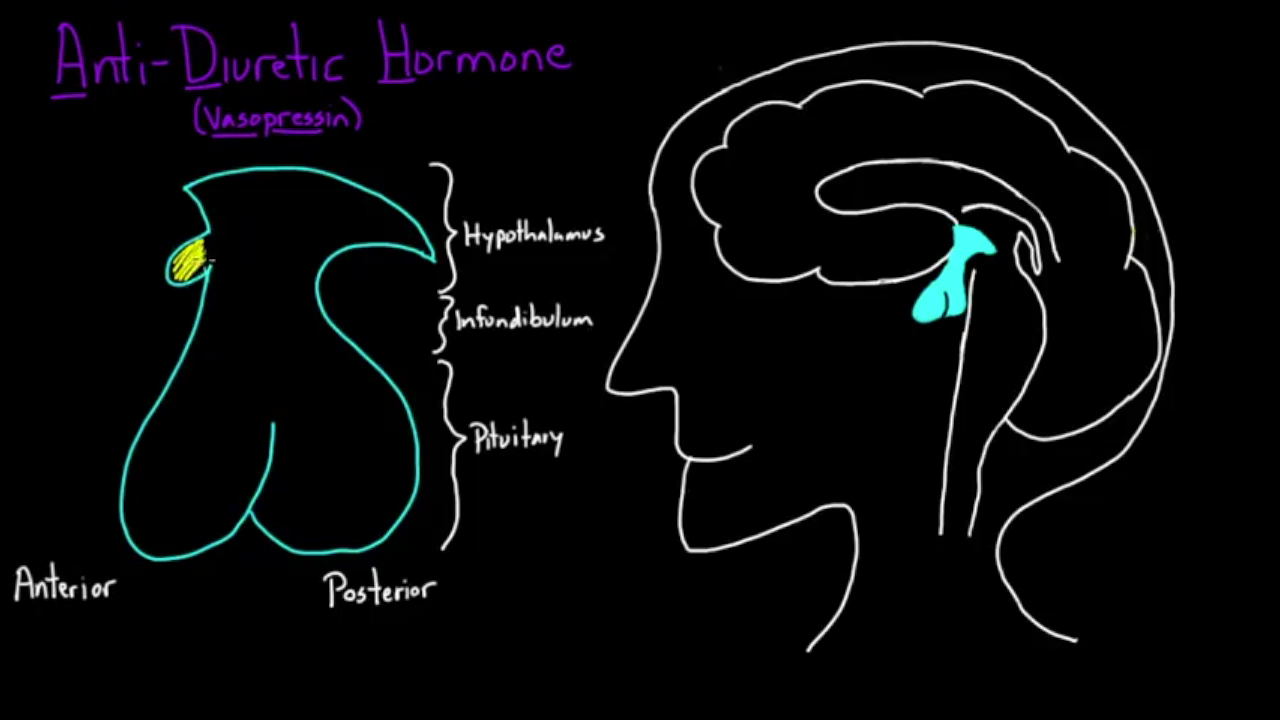 Anti-Diuretic Hormone
(Vasopressin)
Hypothalamus
Infundibulum
Pituitary
Anterior
Posterior